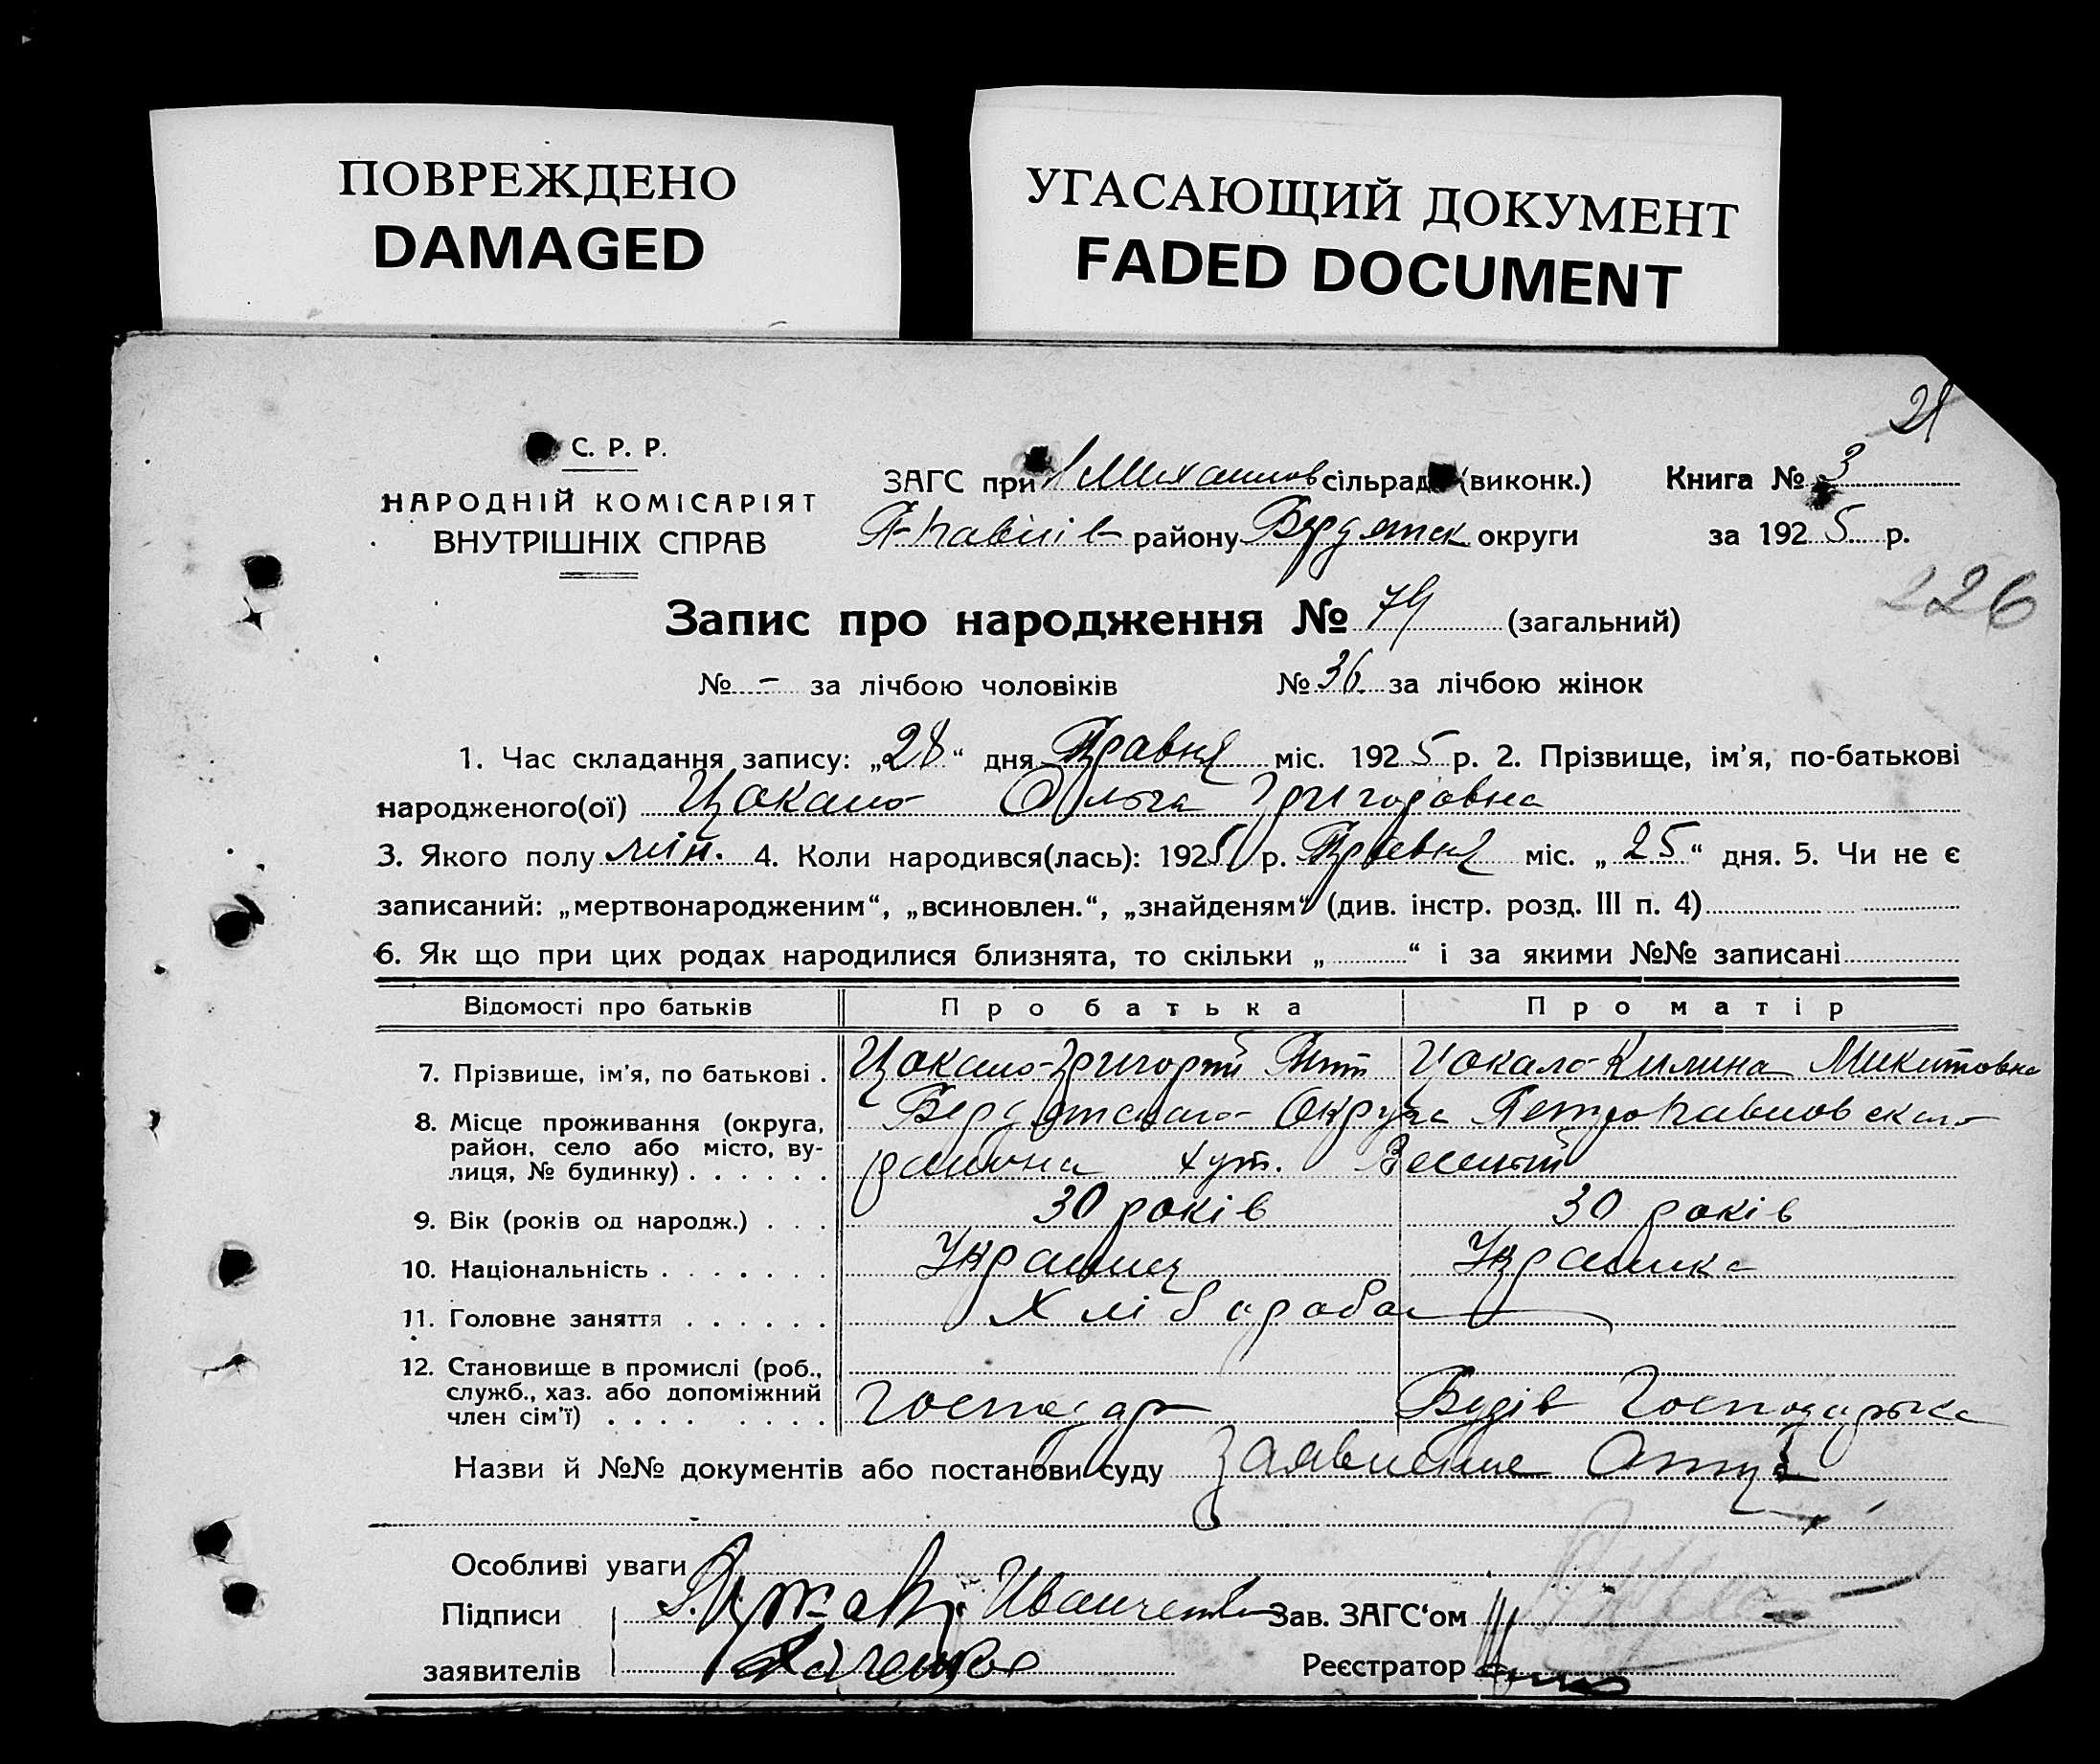 ПОВРЕЖДЕНО
DAMAGED
УГАСАЮЩИЙ ДОКУМЕНТ
FADED DOCUMENT
21
С. Р. Р.
НАРОДНІЙ КОМІСАРІЯТ
ВНУТРІШНІХ СПРАВ
ЗАГС при Михайлов сільрад (виконк.)
П-Павлів району Бердянск округи
Книга № 3
за 1925 р.
226
Запис про народження № 74 (загальний)
№ - за лічбою чоловіків № 36 за лічбою жінок
1. Час складання запису: „28“ дня Травня міс. 1925 р. 2. Прізвище, ім'я, по-батькові
народженого(ої) Цокало Ольга Григоровна
3. Якого полу жін. 4. Коли народився(лась): 1925 р. Травня міс. „25“ дня. 5. Чи не є
записаний: „мертвонародженим“, „всиновлен.“, „знайденям“ (див. інстр. розд. III п. 4)
6. Як що при цих родах народилися близнята, то скільки „ “ і за якими №№ записані
Відомості про батьків Про батька Про матір
7. Прізвище, ім'я, по батькові . Цокало Григорій Цокало Килина Микитовна
8. Місце проживання (округа, Бердянского Округа Петропавловского
район, село або місто, ву-
лиця, № будинку) . . . . . . району хут. Веселый
9. Вік (років од народж.) . . . 30 років 30 років
10. Національність . . . . . . . Українец Українка
11. Головне заняття . . . . . . Хліборобо
12. Становище в промислі (роб.,
служб., хаз. або допоміжний
член сім'ї) . . . . . . . . Господар Господарка
Назви й №№ документів або постанови суду Заявление Отца
Особливі уваги
Підписи Иванченко Зав. ЗАГС'ом
заявителів Реєстратор